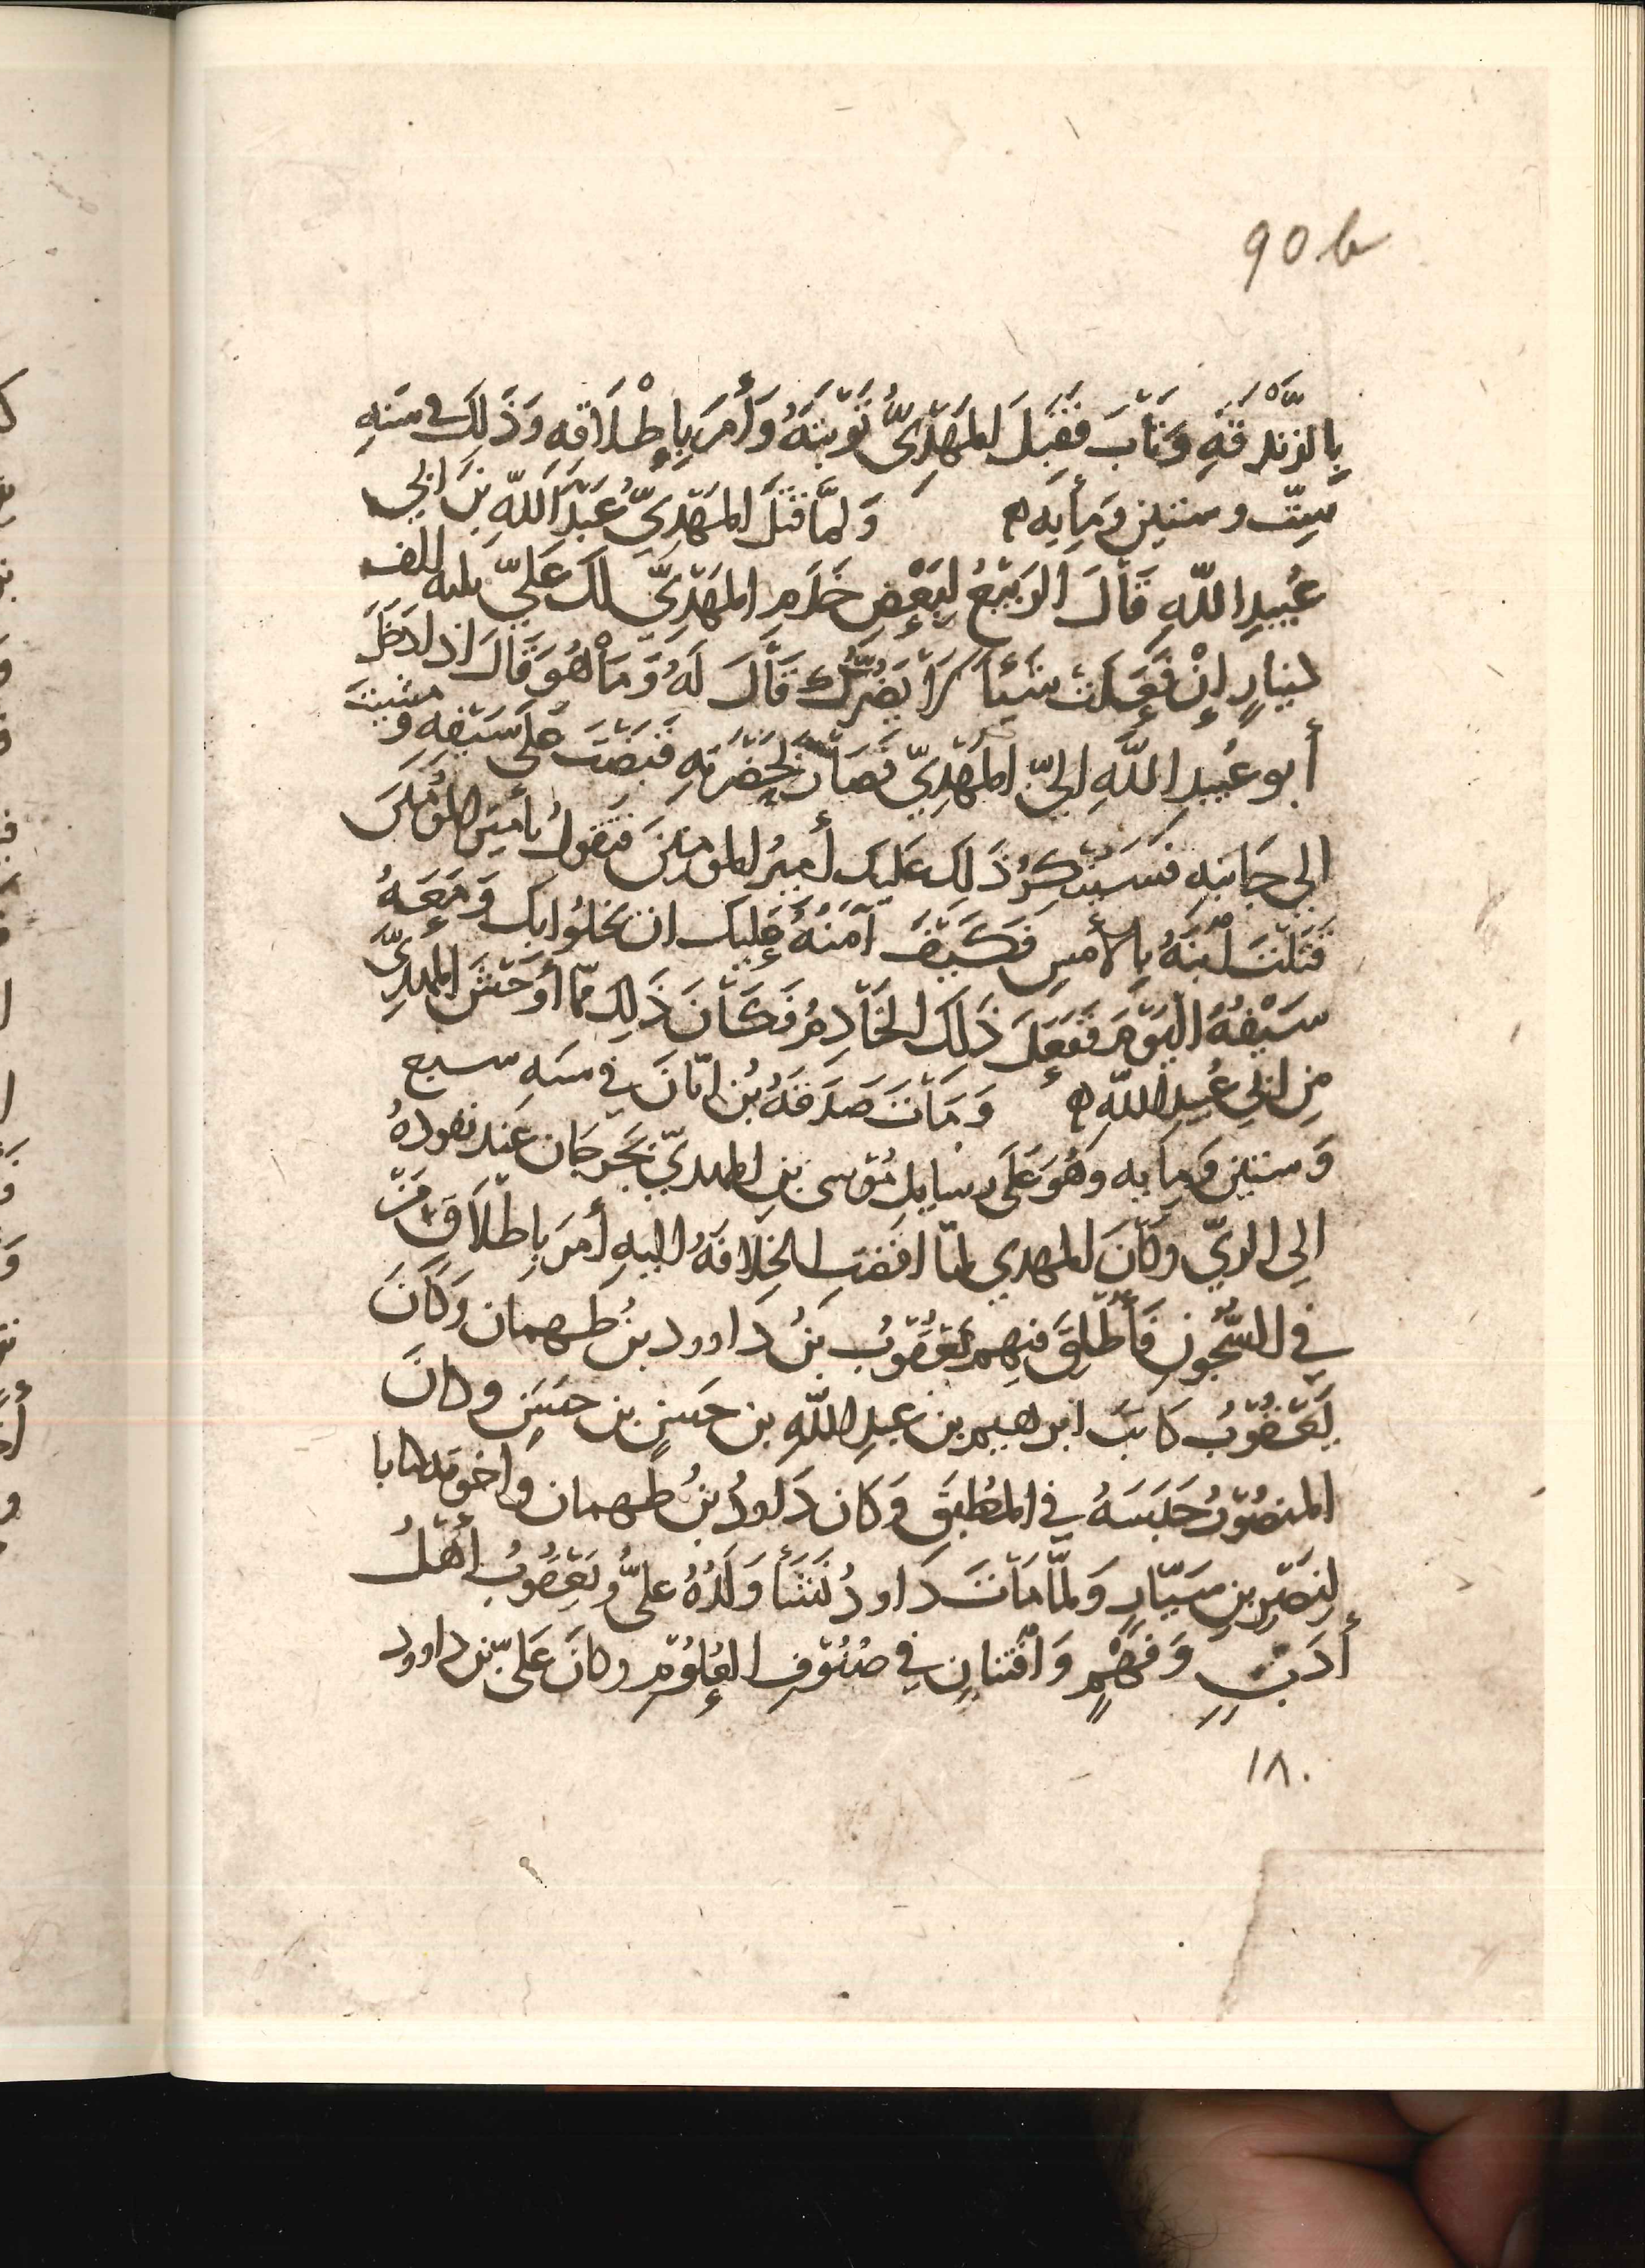 90 b
بِالزَّنْدَقَةِ وَتَابَ فَقَبِلَ المَهْدِيُّ تَوْبَتَهُ وَأَمَرَ بِإِطْلَاقه وَذَلِكَ في سَنَهِ
سِتّ وستين وَمِأيَه ه وَلمَّا قتَلَ المَهْدِيّ عَبْدَ اللّهِ بنَ ابي
عُبيدِ اللّهِ قَالَ الرَبِيْعُ لِبَعْضِ خَدَمِ المَهْدِيّ لكَ عَلَيّ ثلثه الف
دينارٍ إِنْ فَعَلتَ شَيئاً لَا يَضُرّك قَالَ لَهُ وَمَا هُوَ قَالَ اذا دَخَلَ
أبو عُبيدِ اللَّهِ اليّ المَهْدِيّ فصَارَ بحَضْرَتهِ قبَضْتَ عَلَى سَيْفه وَمشيتَ
الي جَانبِهِ فسَيُنْكِرُ ذَلِكَ عَليكَ أميرُ المومنينَ فتقولُ يأميرَ المؤمنينَ
قَتَلتَ ابْنَهُ بِالأَمْسِ فكَيْفَ آمنُهُ عَليك ان يخلُوا بِكَ وَمَعَهُ
سَيْفُهُ اليَوْمَ فَفَعَلَ ذَلِكَ الخَادِمُ فكَانَ ذَلِكَ ممّا أوْحَشَ المهديّ
مِن ابي عُبيدِ اللّهِ ه وَمَاتَ صَدَقَهُ بْن ابَانَ في سَنَهِ سبع
وَستين وَمِايه وَهُوَ عَلَى رسايل مُوْسى بنِ المهديّ بجُرجَان عند نفوذهُ
الِى الريّ وَكَانَ المهدي لمّا افضَتِ الخِلافَهُ اليهِ أمَرَ بِإطْلَاقِ مَنْ
في السُّجُونِ فأُطْلِقَ فيهم يَعْقُوبُ بنُ داوود بنُ طهمان وَكَانَ
يَعْقُوْبُ كَاتبَ ابرهيم بن عبدِ اللّهِ بن حَسَنٍ بن حَسَنِ وكانَ
المنصُوْرُ حَبَسَهُ في المُطْبَقَ وَكان دَاودُ بنُ طهمان واخوته كتابا
لنَصْرِ بنِ سَيّارٍ وَلمّا مَاتَ دَاودُ نَشَأَ وَلَدُهُ عليُّ وَيَعْقُوبُ أهْلُ
أدَبٍ وَفَهْمٍ وَافْتنانٍ في صُنُوْفِ العُلُوْمِ وكانَ عَليّ بن داوود
١٨٠